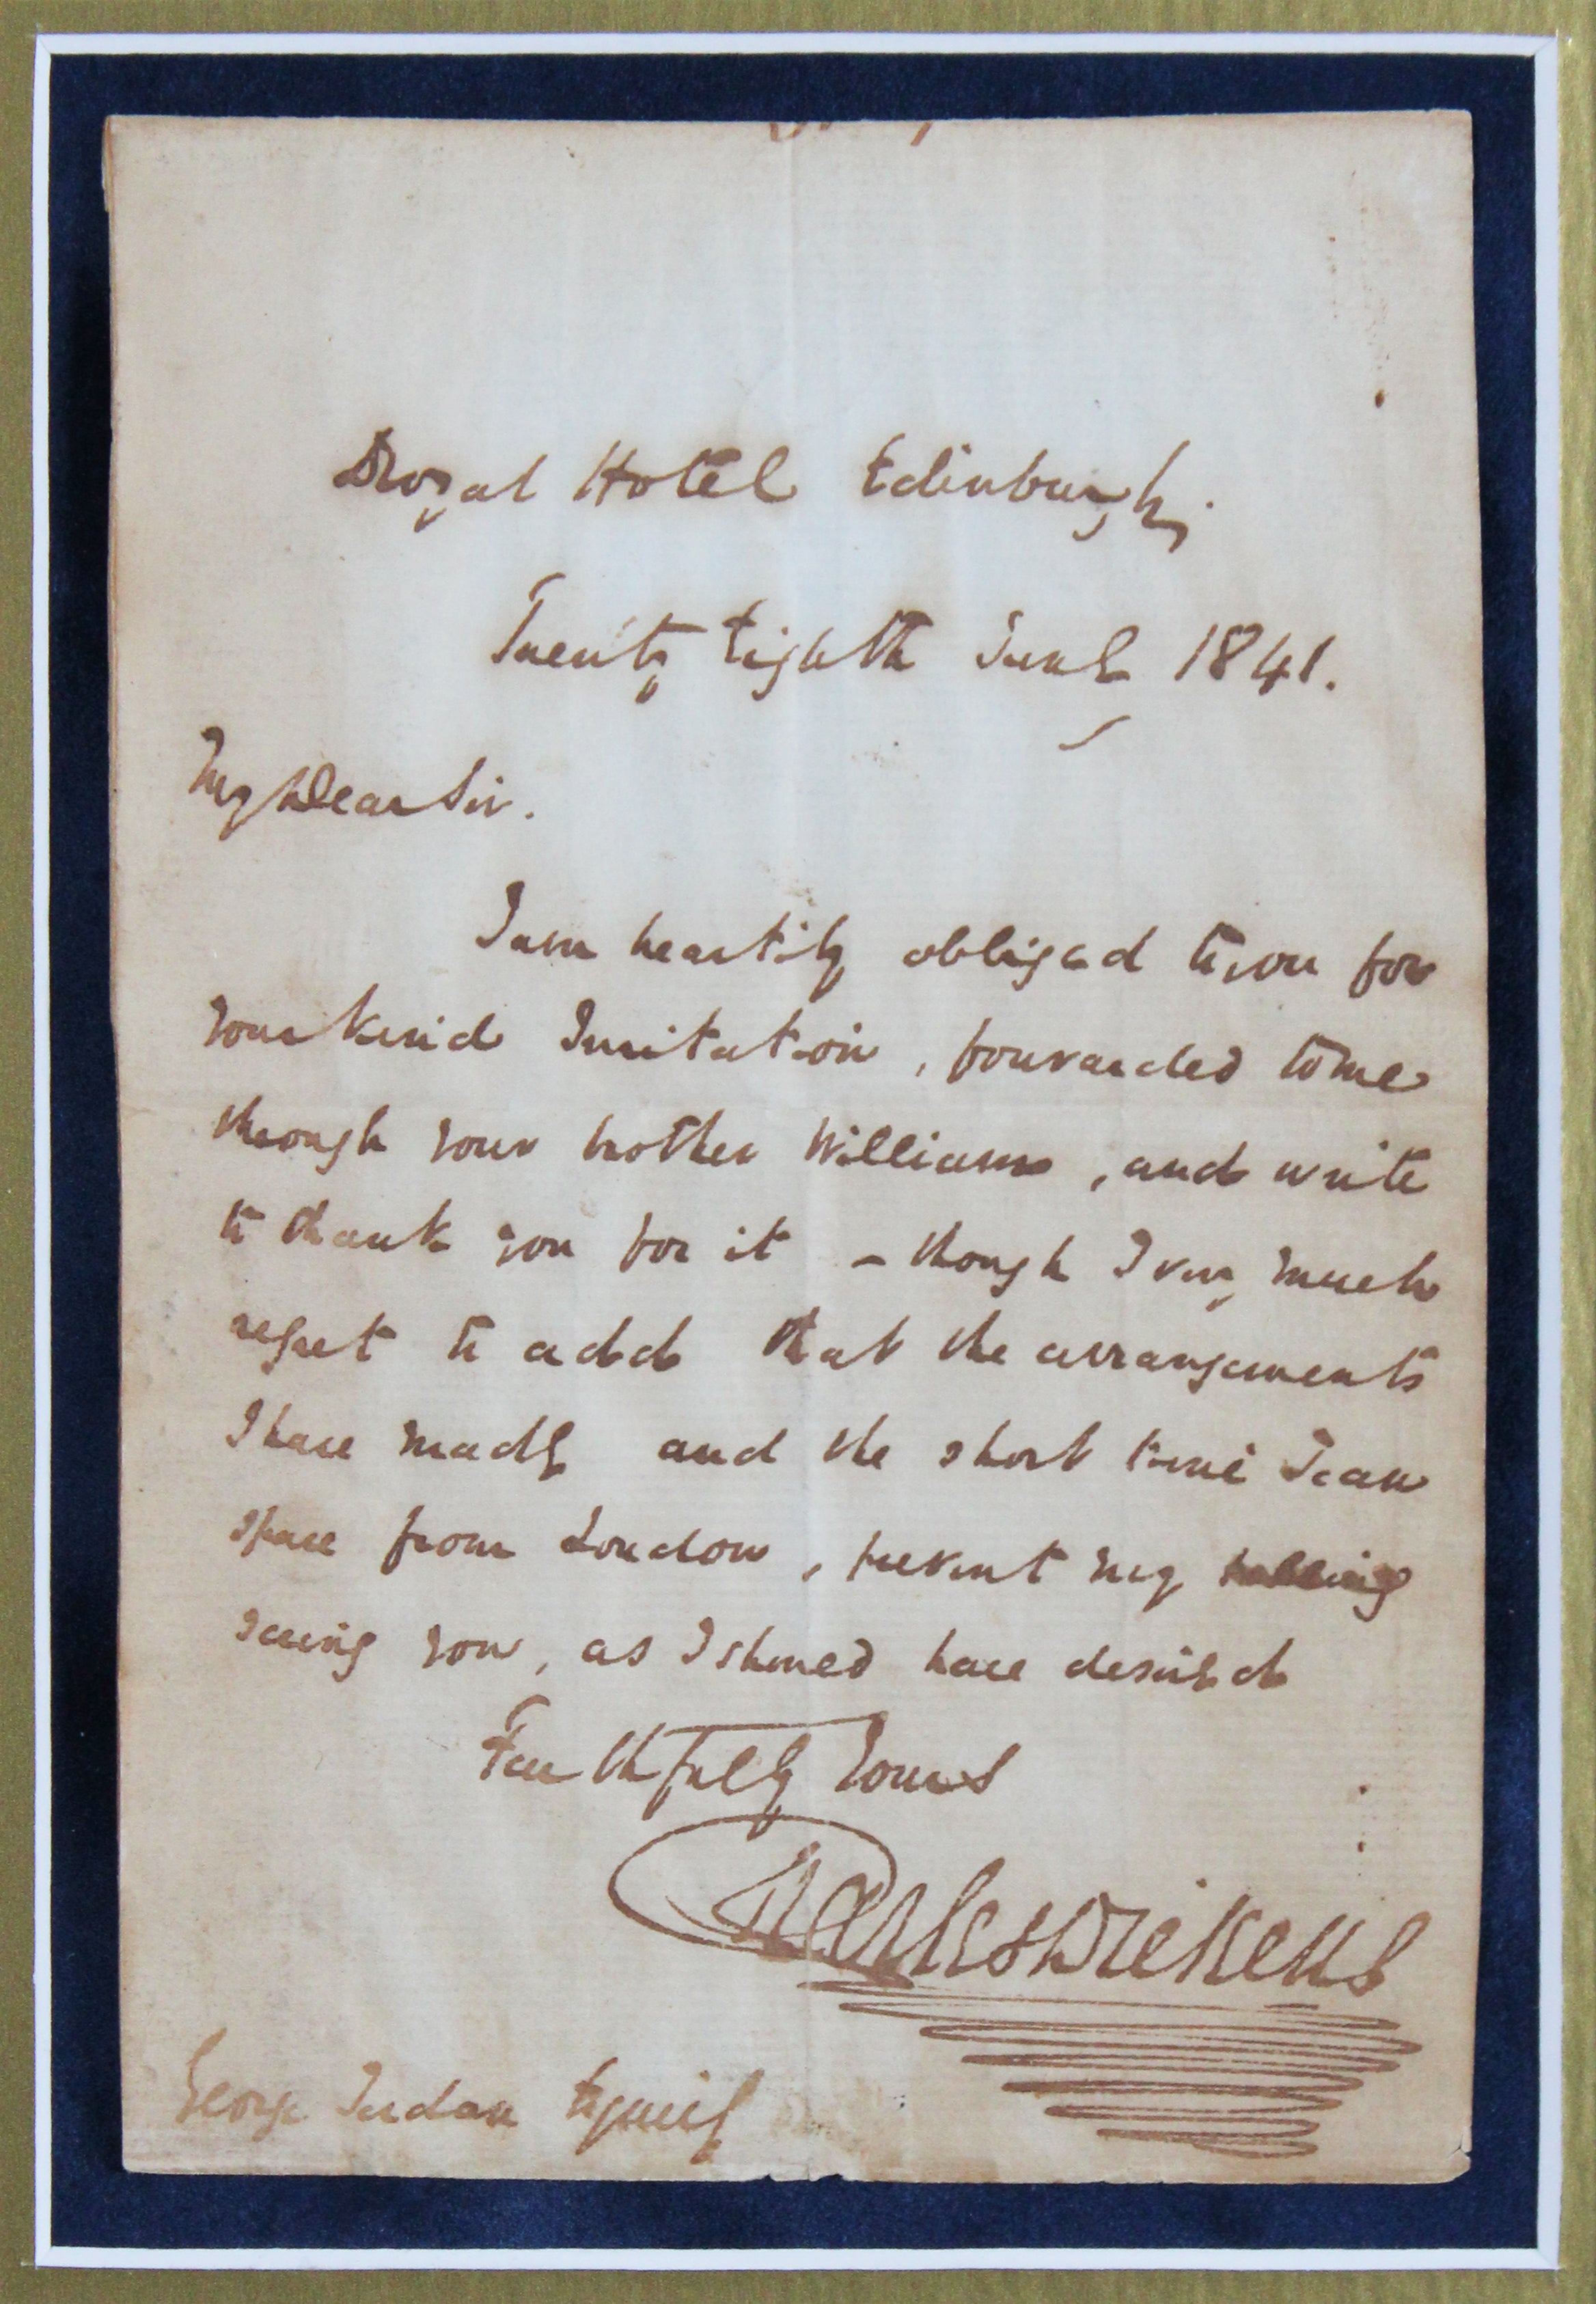 Royal Hotel Edinburgh.
Twenty Eighth June 1841.
My Dear Sir.
I am heartily obliged to you for
your kind Invitation, forwarded to me
through your brother William, and write
to thank you for it – though I very much
regret to add that the arrangements
I have made and the short time I can
spare from London, prevent my
seeing you, as I should have desired
Faithfully Yours
Charles Dickens
George Jerdan Esquire